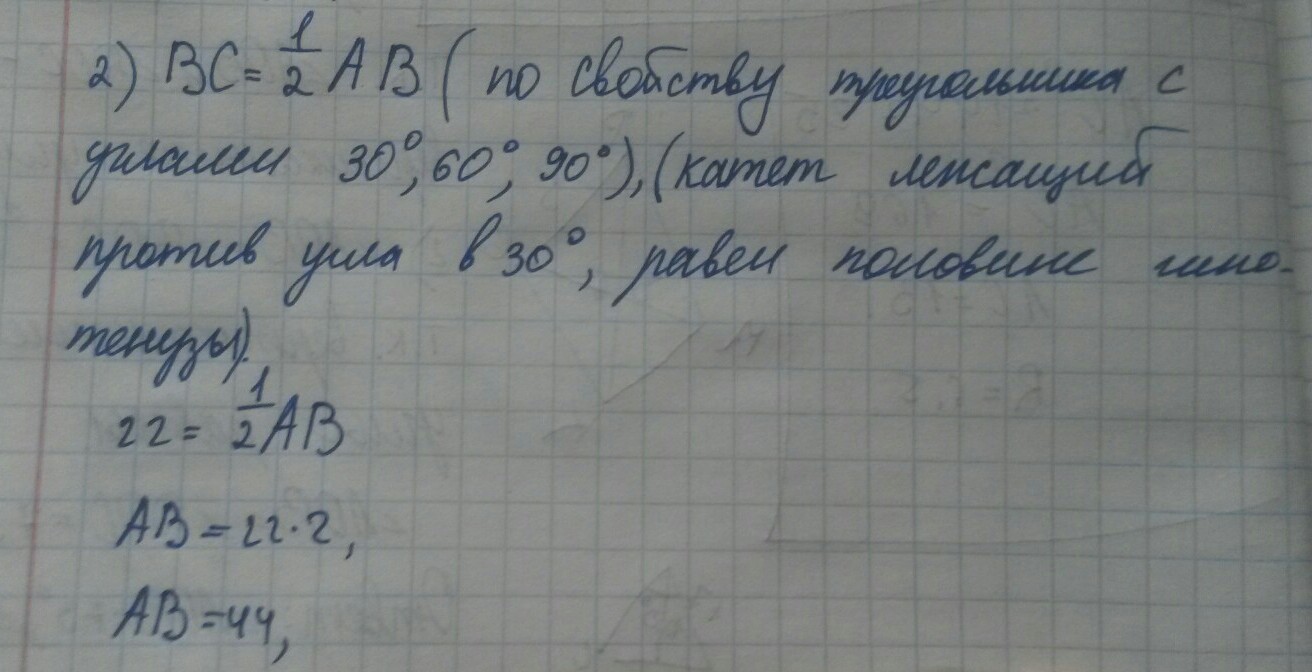 2) BC = 1/2 AB ( по свойству треугольника с
углами 30°, 60°, 90°), (катет лежащий
против угла в 30°, равен половине гипо-
тенузы).
22 = 1/2 AB
AB = 22 · 2,
AB = 44,